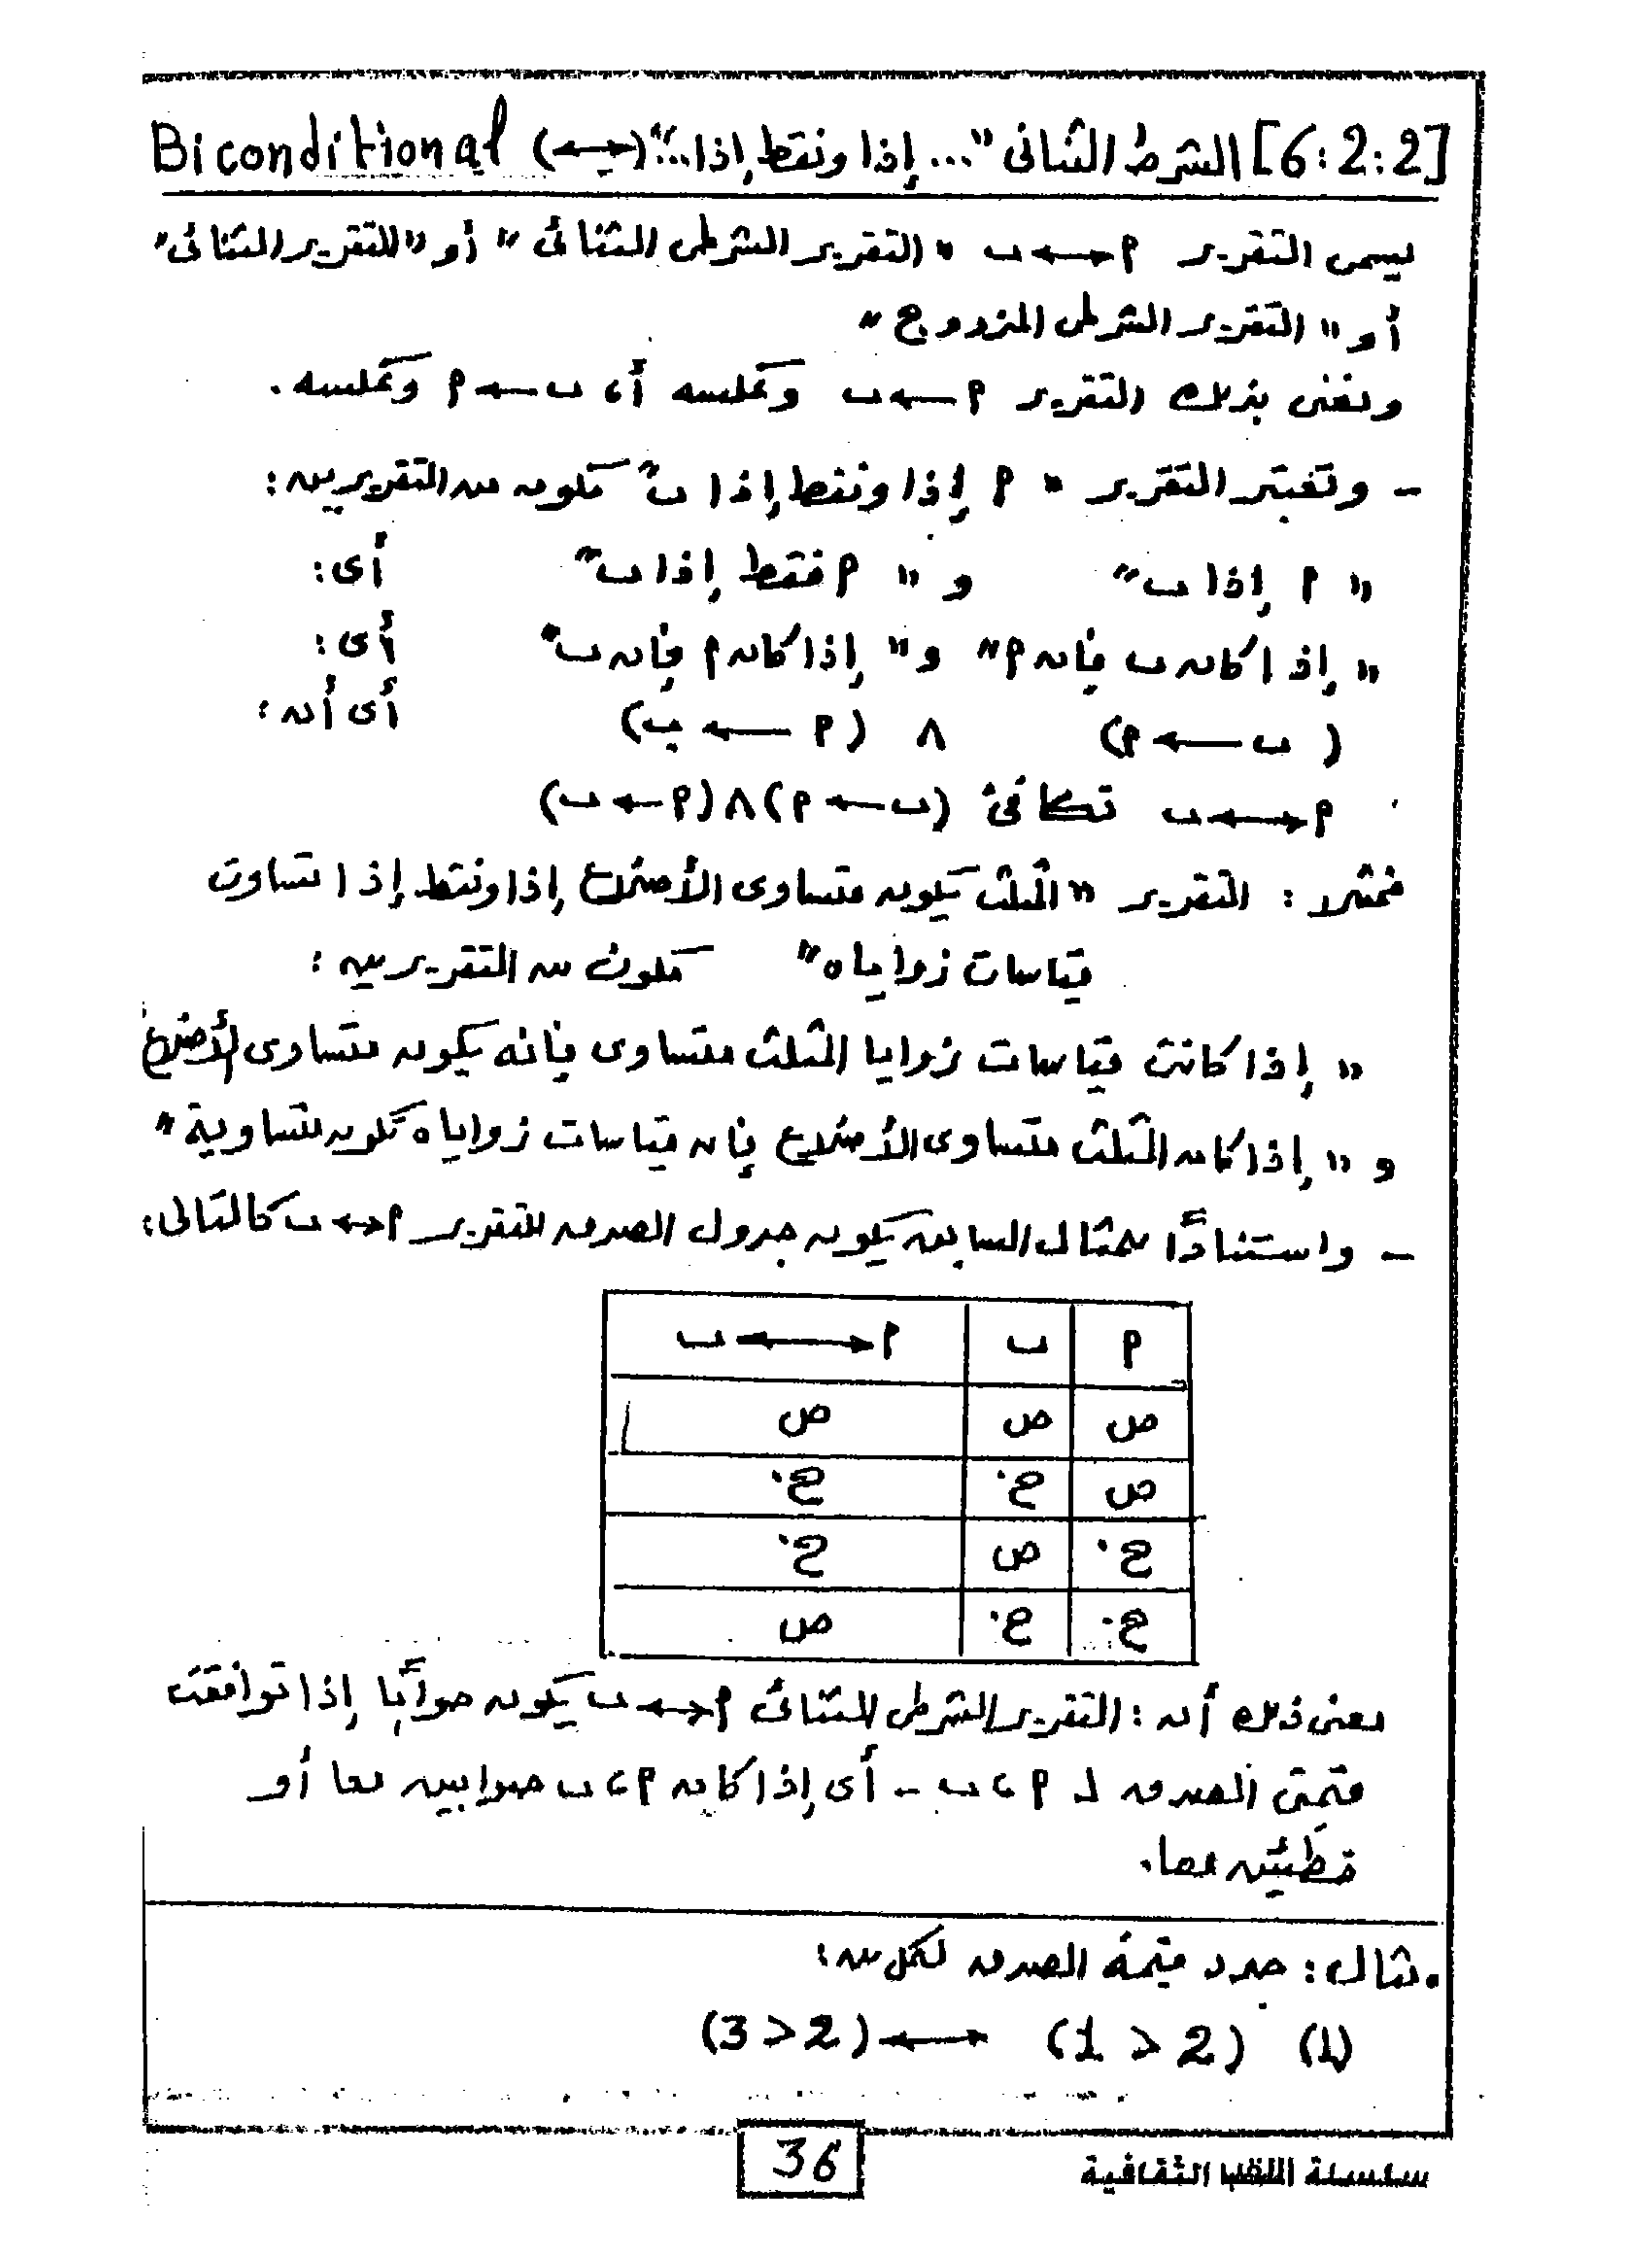 [6:2:2] الشرط الثنائى "... إذا وفقط إذا..." (↔) Biconditional
يسمى التقرير P ↔ ب "التقرير الشرطى الثنائى" أو "التقرير الثنائى"
أو "التقرير الشرطى المزدوج"
ونعنى بذلك التقرير P ← ب وعكسه أى ب ← P وعكسه.
- وتعتبر التقرير "P إذا وفقط إذا ب" مكون من التقريرين:
"P إذا ب" و "P فقط إذا ب" أى:
"إذا كان ب فإن P" و "إذا كان P فإن ب" أى:
(ب ← P) ∧ (P ← ب) أى أن:
P ↔ ب تكافئ (ب ← P) ∧ (P ← ب)
فمثلا: التقرير "المثلث يكون متساوى الأضلاع إذا وفقط إذا تساوت
قياسات زواياه" مكون من التقريرين:
"إذا كانت قياسات زوايا المثلث متساوى فإنه يكون متساوى الأضلاع
و "إذا كان المثلث متساوى الأضلاع فإن قياسات زواياه تكون متساوية"
- واستنادًا للمثال السابق يكون جدول الصدق للتقرير P ↔ ب كالتالى:
P ب P ↔ ب
ص ص ص
ص خ خ
خ ص خ
خ خ ص
معنى ذلك أن: التقرير الشرطى الثنائى P ↔ ب يكون صوابًا إذا توافقت
قيمتى الصدق لـ P، ب - أى إذا كان P، ب صوابين معا أو
خطئين معا.
مثال: حدد قيمة الصدق لكل من:
(1) (1 > 2) ↔ (3 > 2)
36
سلسلة الثقافية